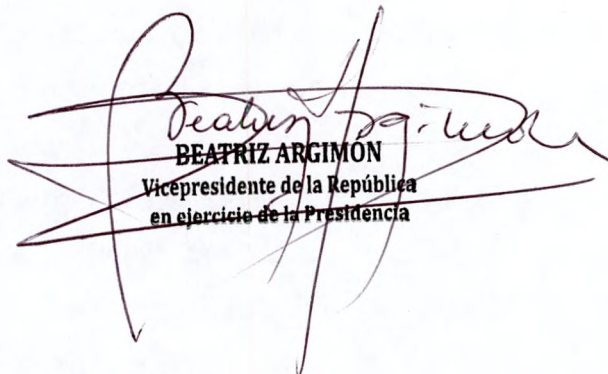 Beatriz Argimón
BEATRIZ ARGIMÓN
Vicepresidente de la República
en ejercicio de la Presidencia